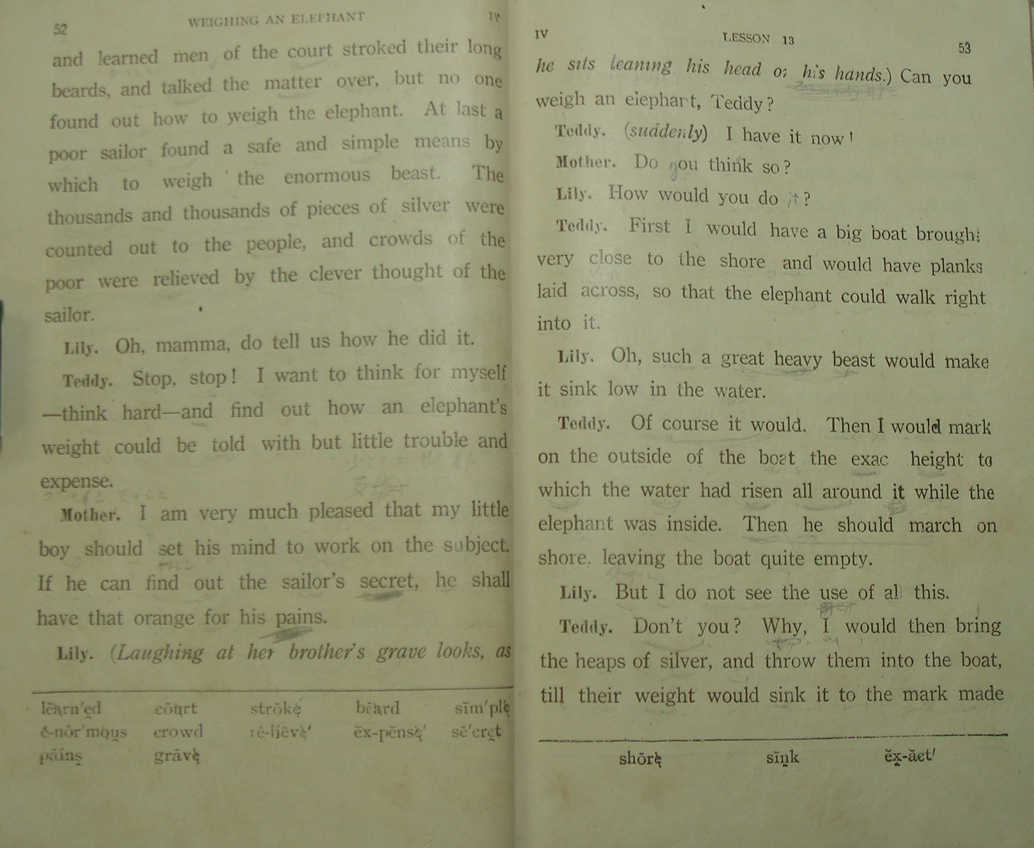 52 WEIGHING AN ELEPHANT IV
and learned men of the court stroked their long
beards, and talked the matter over, but no one
found out how to weigh the elephant. At last a
poor sailor found a safe and simple means by
which to weigh the enormous beast. The
thousands and thousands of pieces of silver were
counted out to the people, and crowds of the
poor were relieved by the clever thought of the
sailor.
Lily. Oh, mamma, do tell us how he did it.
Teddy. Stop, stop! I want to think for myself
—think hard—and find out how an elephant's
weight could be told with but little trouble and
expense.
Mother. I am very much pleased that my little
boy should set his mind to work on the subject.
If he can find out the sailor's secret, he shall
have that orange for his pains.
Lily. (Laughing at her brother's grave looks, as
lẽarn'ed cōurt strōke bēard sĭm'ple
ē-nôr'moųs crowd rē-liēve' ĕx-pĕnse' sē'cret
pāins grāve
IV LESSON 13 53
he sits leaning his head on his hands.) Can you
weigh an elephant, Teddy?
Teddy. (suddenly) I have it now!
Mother. Do you think so?
Lily. How would you do it?
Teddy. First I would have a big boat brought
very close to the shore and would have planks
laid across, so that the elephant could walk right
into it.
Lily. Oh, such a great heavy beast would make
it sink low in the water.
Teddy. Of course it would. Then I would mark
on the outside of the boat the exac height to
which the water had risen all around it while the
elephant was inside. Then he should march on
shore. leaving the boat quite empty.
Lily. But I do not see the use of al this.
Teddy. Don't you? Why, I would then bring
the heaps of silver, and throw them into the boat,
till their weight would sink it to the mark made
shōre sĭnk ĕx-ăct'